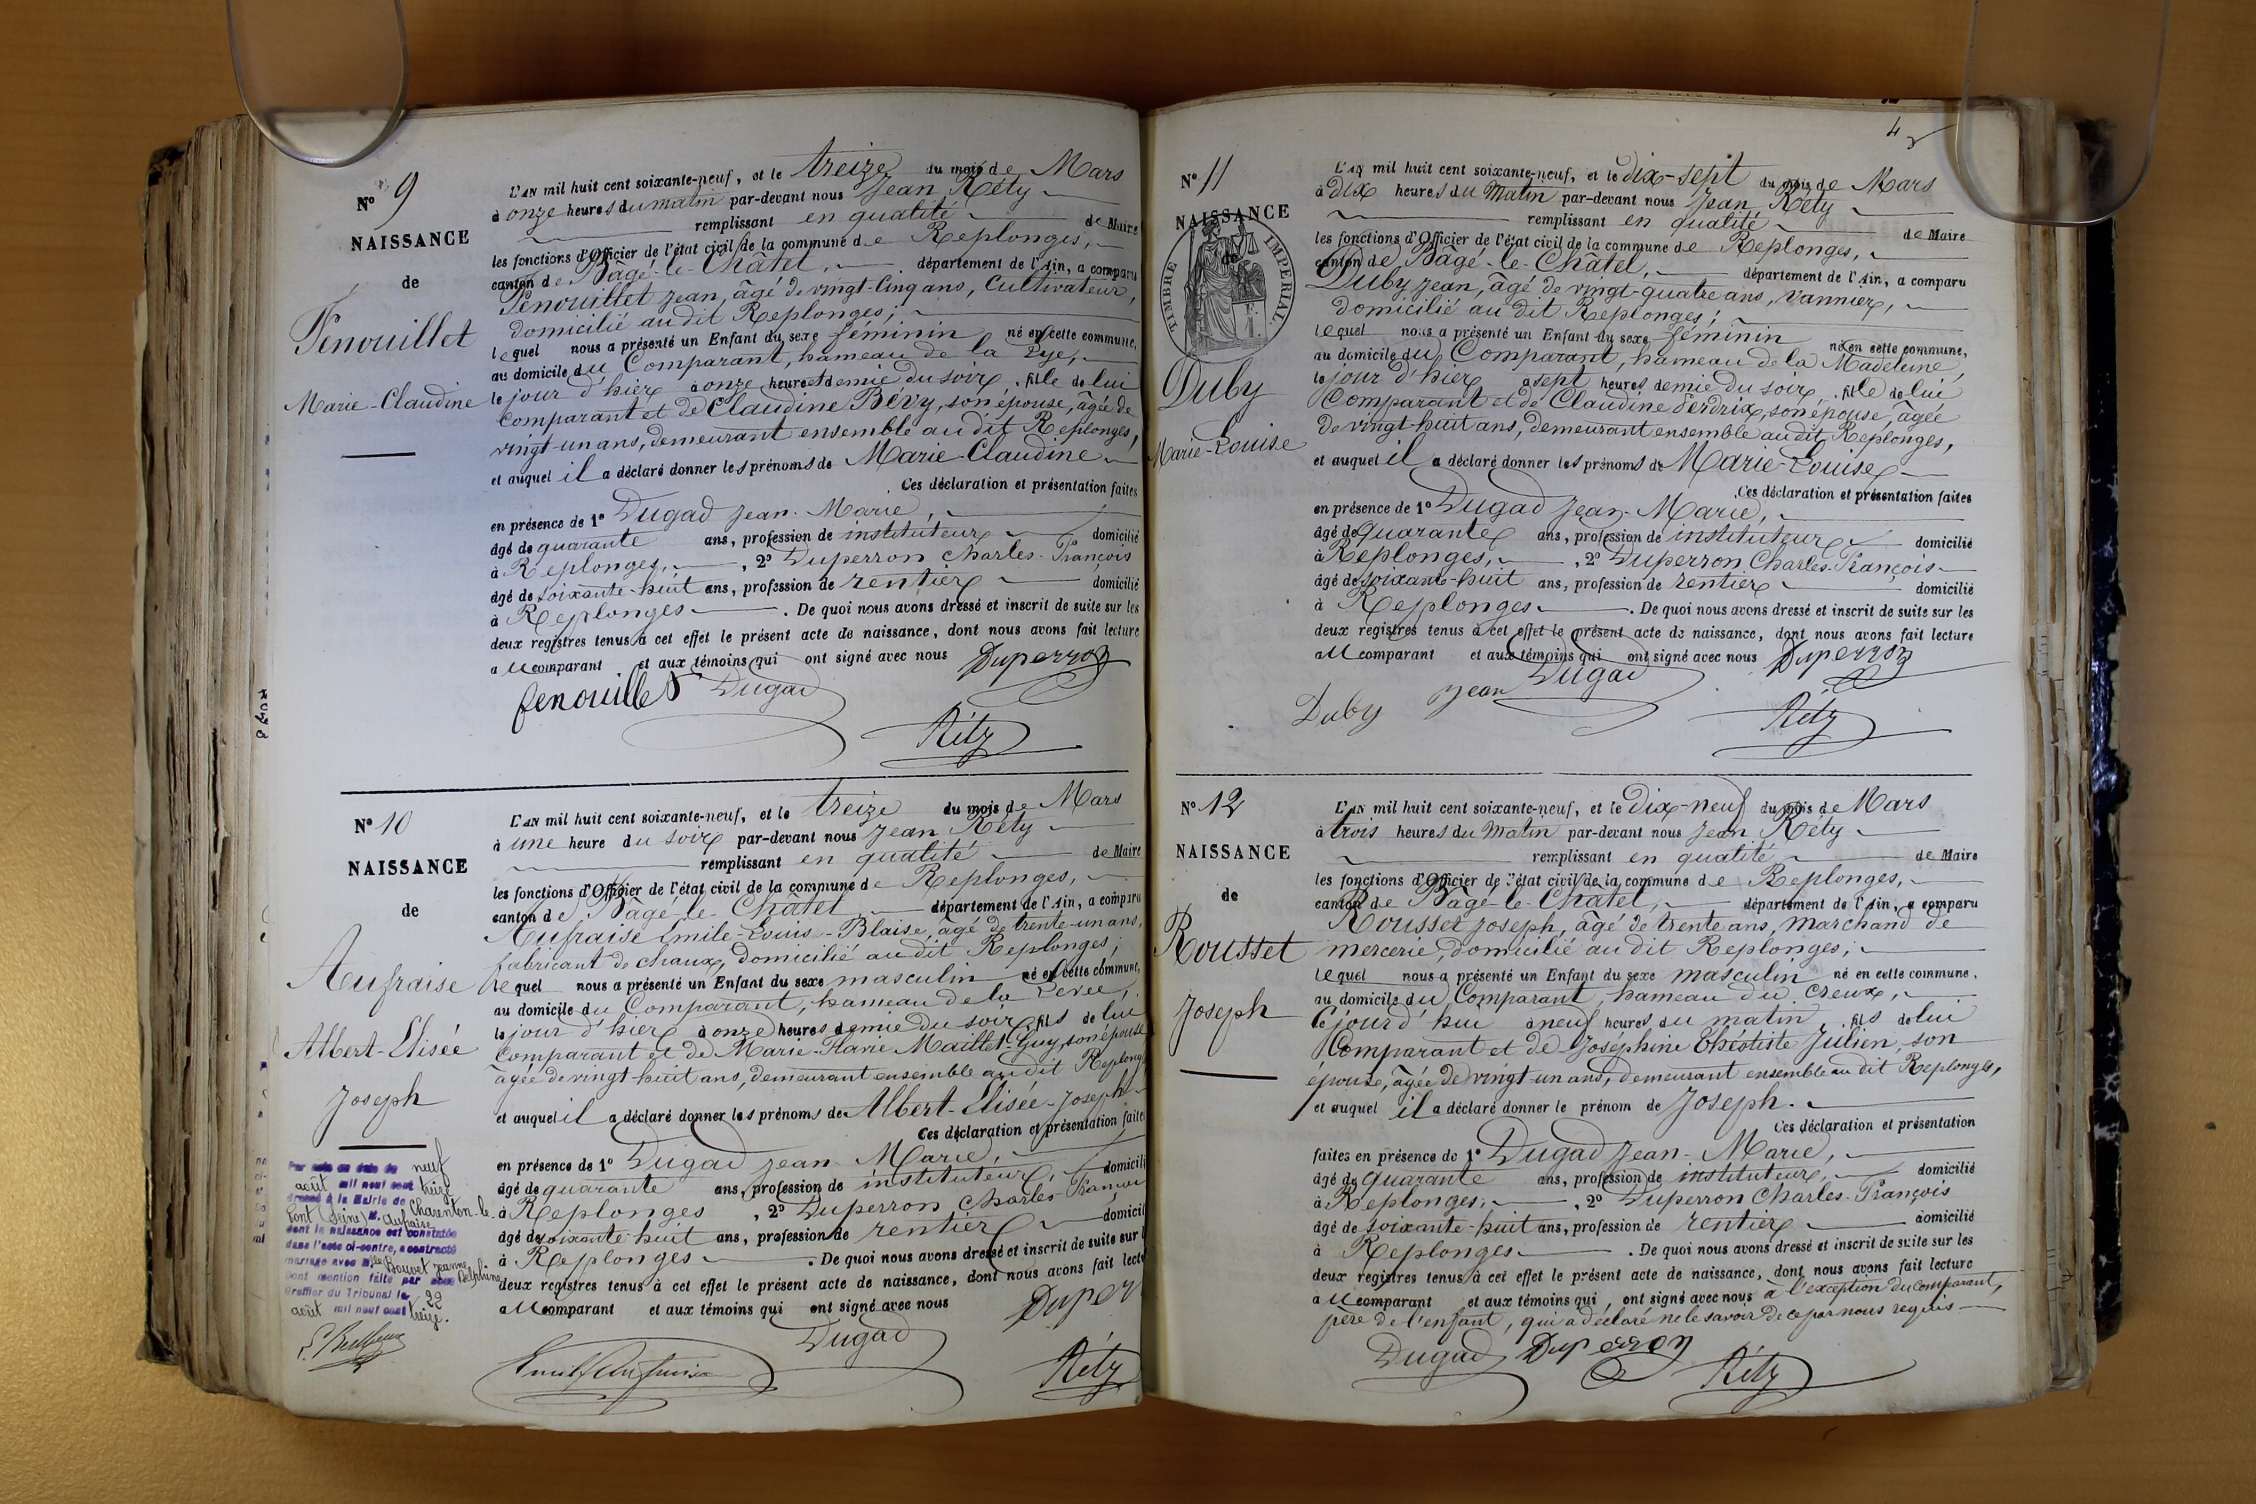 N° 9
NAISSANCE
de
Fenouillet
Marie-Claudine
L'AN mil huit cent soixante-neuf, et le treize du mois de Mars
à onze heures du matin par-devant nous Jean Réty
remplissant en qualité de Maire
les fonctions d'Officier de l'état civil de la commune de Replonges,
canton de Bâgé-le-Châtel, département de l'Ain, a comparu
Fenouillet Jean, âgé de vingt-cinq ans, Cultivateur,
domicilié au dit Replonges;
lequel nous a présenté un Enfant du sexe féminin né en cette commune,
au domicile du Comparant, hameau de la
le jour d'hier à onze heures et demie du soir, fille de lui
comparant et de Claudine Bévy, son épouse, âgée de
vingt-un ans, demeurant ensemble au dit Replonges,
et auquel il a déclaré donner les prénoms de Marie-Claudine
Ces déclaration et présentation faites
en présence de 1° Dugad Jean-Marie,
âgé de quarante ans, profession de instituteur domicilié
à Replonges, , 2° Duperron Charles-François
âgé de soixante-huit ans, profession de rentier domicilié
à Replonges . De quoi nous avons dressé et inscrit de suite sur les
deux registres tenus à cet effet le présent acte de naissance, dont nous avons fait lecture
au comparant et aux témoins qui ont signé avec nous Duperron
fenouillet Dugad
Réty
N° 10
NAISSANCE
de
Aufraise
Albert-Elisée
Joseph
L'AN mil huit cent soixante-neuf, et le treize du mois de Mars
à une heure du soir par-devant nous Jean Réty
remplissant en qualité de Maire
les fonctions d'Officier de l'état civil de la commune de Replonges,
canton de Bâgé-le-Châtel département de l'Ain, a comparu
Aufraise Emile-Louis-Blaise, âgé de trente-un ans,
fabricant de chaux, domicilié au dit Replonges;
lequel nous a présenté un Enfant du sexe masculin né en cette commune,
au domicile du Comparant, hameau de la Levée,
le jour d'hier à onze heures demie du soir, fils de lui
comparant et de Marie-Flavie Maillet-Guy, son épouse
âgée de vingt-huit ans, demeurant ensemble au dit Replong
et auquel il a déclaré donner les prénoms de Albert-Elisée-Joseph
Ces déclaration et présentation faite
en présence de 1° Dugad Jean-Marie,
âgé de quarante ans, profession de instituteur, domicili
à Replonges , 2° Duperron Charles-François
âgé de soixante-huit ans, profession de rentier domicil
à Replonges . De quoi nous avons dressé et inscrit de suite sur l
deux registres tenus à cet effet le présent acte de naissance, dont nous avons fait lect
au comparant et aux témoins qui ont signé avec nous Duper
Dugad
Réty
Par acte en date du neuf
août mil neuf cent treize
dressé à la Mairie de Charenton-le-
Pont (Seine) M. Aufraise
dont la naissance est constatée
dans l'acte ci-contre, a contracté
mariage avec Mlle Bouvet Jeanne
Delphine
dont mention faite par nous
Greffier du Tribunal le 22
août mil neuf cent treize.
4
N° 11
NAISSANCE
de
TIMBRE IMPERIAL
Duby
Marie-Louise
L'AN mil huit cent soixante-neuf, et le dix-sept du mois de Mars
à dix heures du Matin par-devant nous Jean Réty
remplissant en qualité de Maire
les fonctions d'Officier de l'état civil de la commune de Replonges,
canton de Bâgé-le-Châtel, département de l'Ain, a comparu
Duby Jean, âgé de vingt-quatre ans, Vannier,
domicilié au dit Replonges;
lequel nous a présenté un Enfant du sexe féminin né en cette commune,
au domicile du Comparant, hameau de la Madeleine,
le jour d'hier à sept heures demie du soir, fille de lui
Comparant et de Claudine Perdrix, son épouse, âgée
de vingt-huit ans, demeurant ensemble au dit Replonges,
et auquel il a déclaré donner les prénoms de Marie-Louise
Ces déclaration et présentation faites
en présence de 1° Dugad Jean-Marie,
âgé de quarante ans, profession de instituteur domicilié
à Replonges, , 2° Duperron Charles-François
âgé de soixante-huit ans, profession de rentier domicilié
à Replonges . De quoi nous avons dressé et inscrit de suite sur les
deux registres tenus à cet effet le présent acte de naissance, dont nous avons fait lecture
au comparant et aux témoins qui ont signé avec nous Duperron
Duby Jean Dugad
Réty
N° 12
NAISSANCE
de
Rousset
Joseph
L'AN mil huit cent soixante-neuf, et le Dix-neuf du mois de Mars
à trois heures du Matin par-devant nous Jean Réty
remplissant en qualité de Maire
les fonctions d'Officier de l'état civil de la commune de Replonges,
canton de Bâgé-le-Châtel, département de l'Ain, a comparu
Rousset Joseph, âgé de trente ans, Marchand de
mercerie, domicilié au dit Replonges;
lequel nous a présenté un Enfant du sexe masculin né en cette commune,
au domicile du Comparant, hameau du Creux,
le jour d'hui à neuf heures du matin fils de lui
Comparant et de Joséphine Julien, son
épouse, âgée de vingt-un ans, demeurant ensemble au dit Replonges,
et auquel il a déclaré donner le prénom de Joseph.
Ces déclaration et présentation
faites en présence de 1° Dugad Jean-Marie,
âgé de quarante ans, profession de instituteur, domicilié
à Replonges, , 2° Duperron Charles-François
âgé de soixante-huit ans, profession de rentier domicilié
à Replonges . De quoi nous avons dressé et inscrit de suite sur les
deux registres tenus à cet effet le présent acte de naissance, dont nous avons fait lecture
au comparant et aux témoins qui ont signé avec nous à l'exception du comparant,
père de l'enfant, qui a déclaré ne le savoir de ce par nous requis
Dugad Duperron Réty